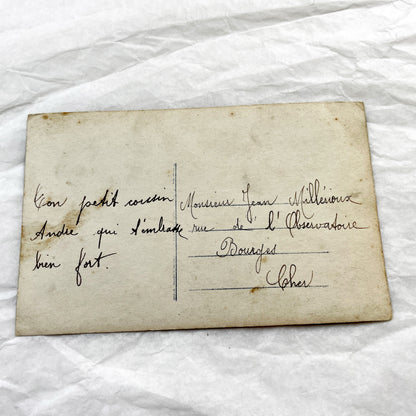 Ton petit cousin
André qui t'embrasse
bien fort.
Monsieur Jean Millérioux
rue de l'Observatoire
Bourges
Cher